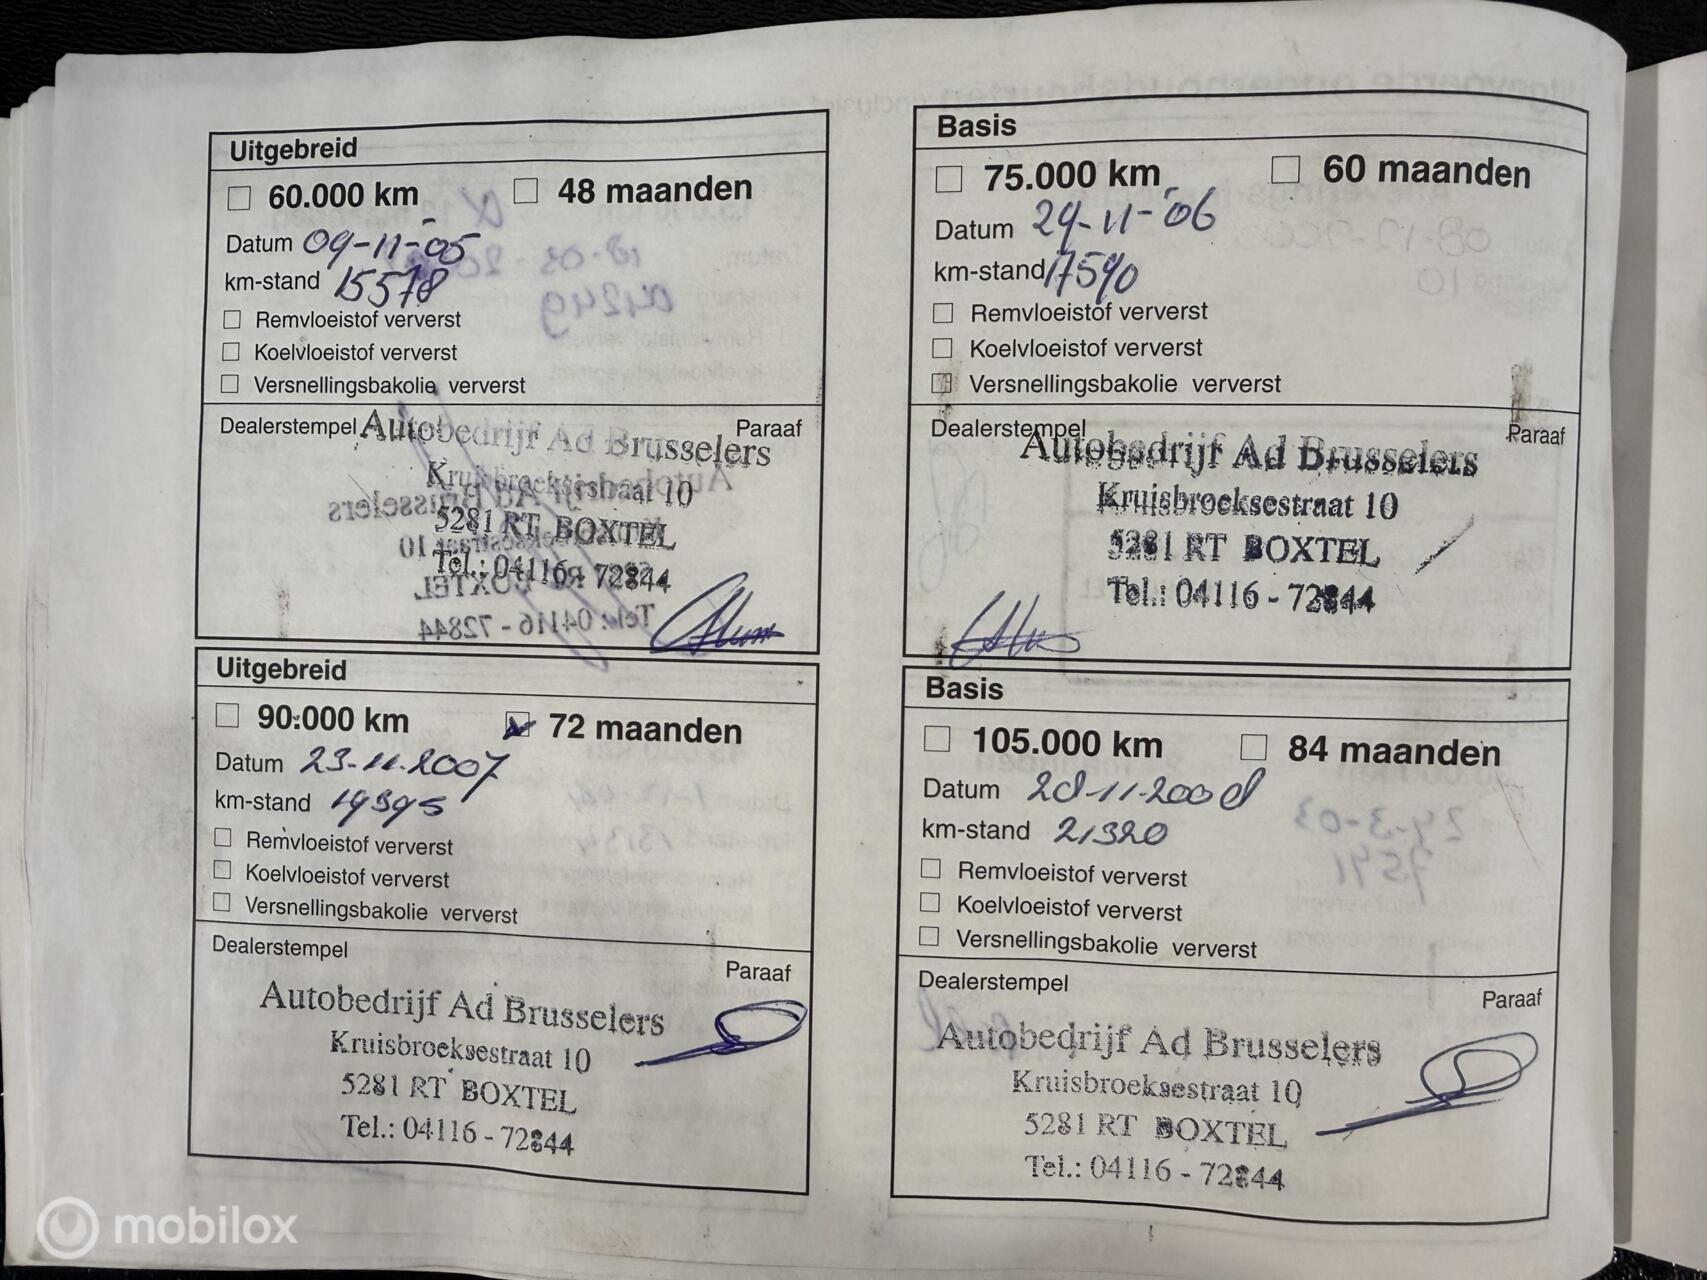 Uitgebreid
60.000 km 48 maanden
Datum 09-11-05
km-stand 15578
Remvloeistof ververst
Koelvloeistof ververst
Versnellingsbakolie ververst
Dealerstempel Paraaf
Autobedrijf Ad Brusselers
Kruisbroeksestraat 10
5281 RT BOXTEL
Tel.: 04116 - 72844
Basis
75.000 km 60 maanden
Datum 29-11-'06
km-stand 17590
Remvloeistof ververst
Koelvloeistof ververst
Versnellingsbakolie ververst
Dealerstempel Paraaf
Autobedrijf Ad Brusselers
Kruisbroeksestraat 10
5281 RT BOXTEL
Tel.: 04116 - 72844
Uitgebreid
90.000 km 72 maanden
Datum 23-11-2007
km-stand 19395
Remvloeistof ververst
Koelvloeistof ververst
Versnellingsbakolie ververst
Dealerstempel
Paraaf
Autobedrijf Ad Brusselers
Kruisbroeksestraat 10
5281 RT BOXTEL
Tel.: 04116 - 72844
Basis
105.000 km 84 maanden
Datum 28-11-2008
km-stand 21320
Remvloeistof ververst
Koelvloeistof ververst
Versnellingsbakolie ververst
Dealerstempel
Paraaf
Autobedrijf Ad Brusselers
Kruisbroeksestraat 10
5281 RT BOXTEL
Tel.: 04116 - 72844
mobilox